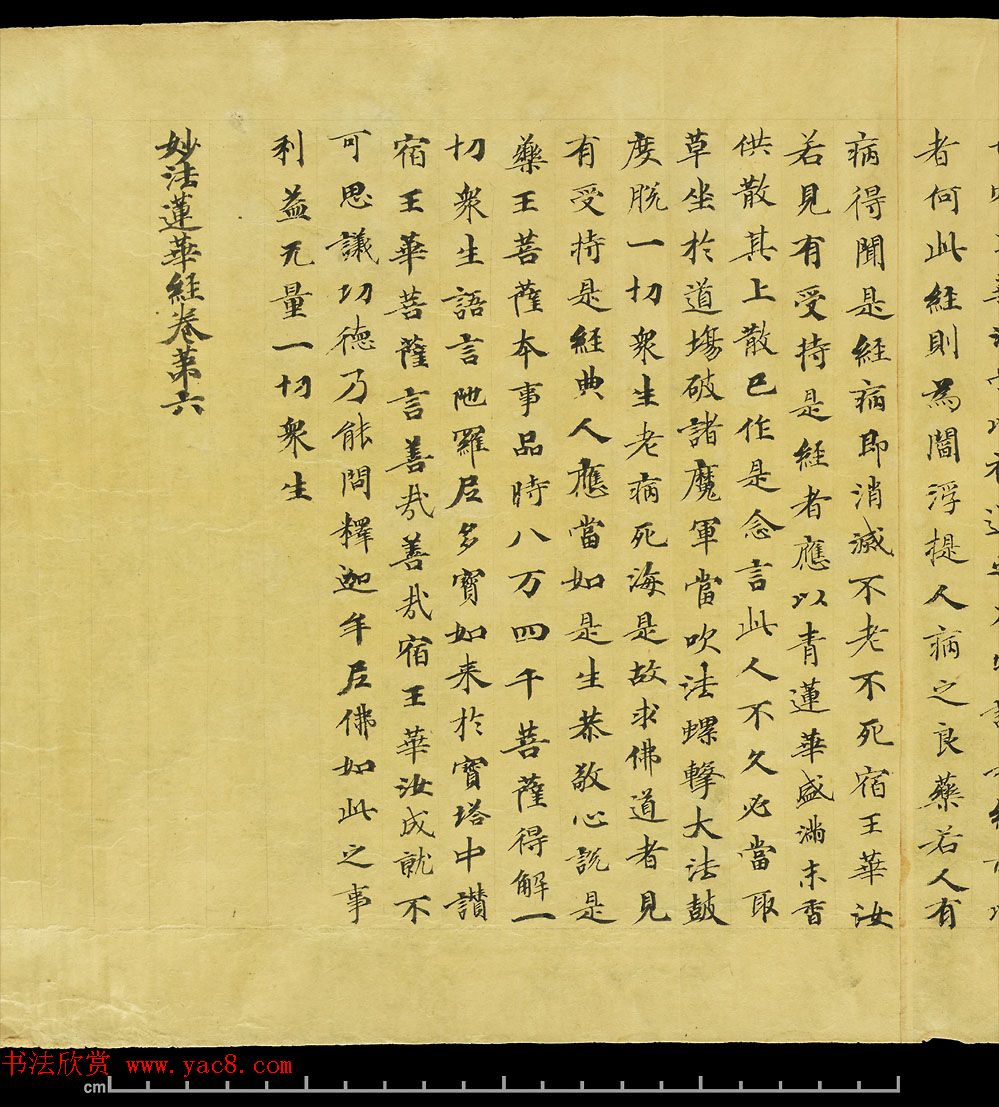 者何此経則為閻浮提人病之良藥若人有
病得聞是経病即消滅不老不死宿王華汝
若見有受持是経者應以青蓮華盛滿末香
供散其上散已作是念言此人不久必當取
草坐於道場破諸魔軍當吹法螺擊大法鼓
度脱一切衆生老病死海是故求佛道者見
有受持是経典人應當如是生恭敬心說是
藥王菩薩本事品時八万四千菩薩得解一
切衆生語言陁羅尼多寶如来於寶塔中讃
宿王華菩薩言善㢤善㢤宿王華汝成就不
可思議功德乃能問釋迦牟尼佛如此之事
利益无量一切衆生
妙法蓮華経卷苐六
书法欣赏 www.yac8.com
cm